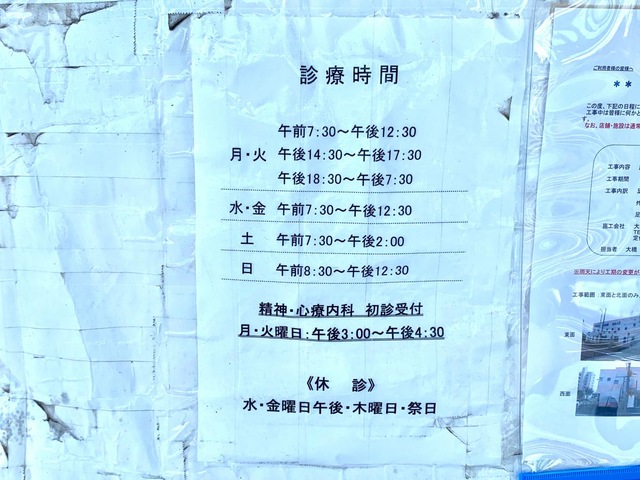 診療時間
午前7:30～午後12:30
月・火 午後14:30～午後17:30
午後18:30～午後7:30
水・金 午前7:30～午後12:30
土 午前7:30～午後2:00
日 午前8:30～午後12:30
精神・心療内科 初診受付
月・火曜日:午後3:00～午後4:30
《休 診》
水・金曜日午後・木曜日・祭日
ご利用者様の皆様へ
＊＊
この度、下記の日程に
工事中は皆様に何かと
す。
なお、店舗・施設は通常
工事内容
工事期間
工事内訳
施工会社 大
担当者 大橋
※雨天により工期の変更が
工事範囲:東面と北面のみ
東面
西面